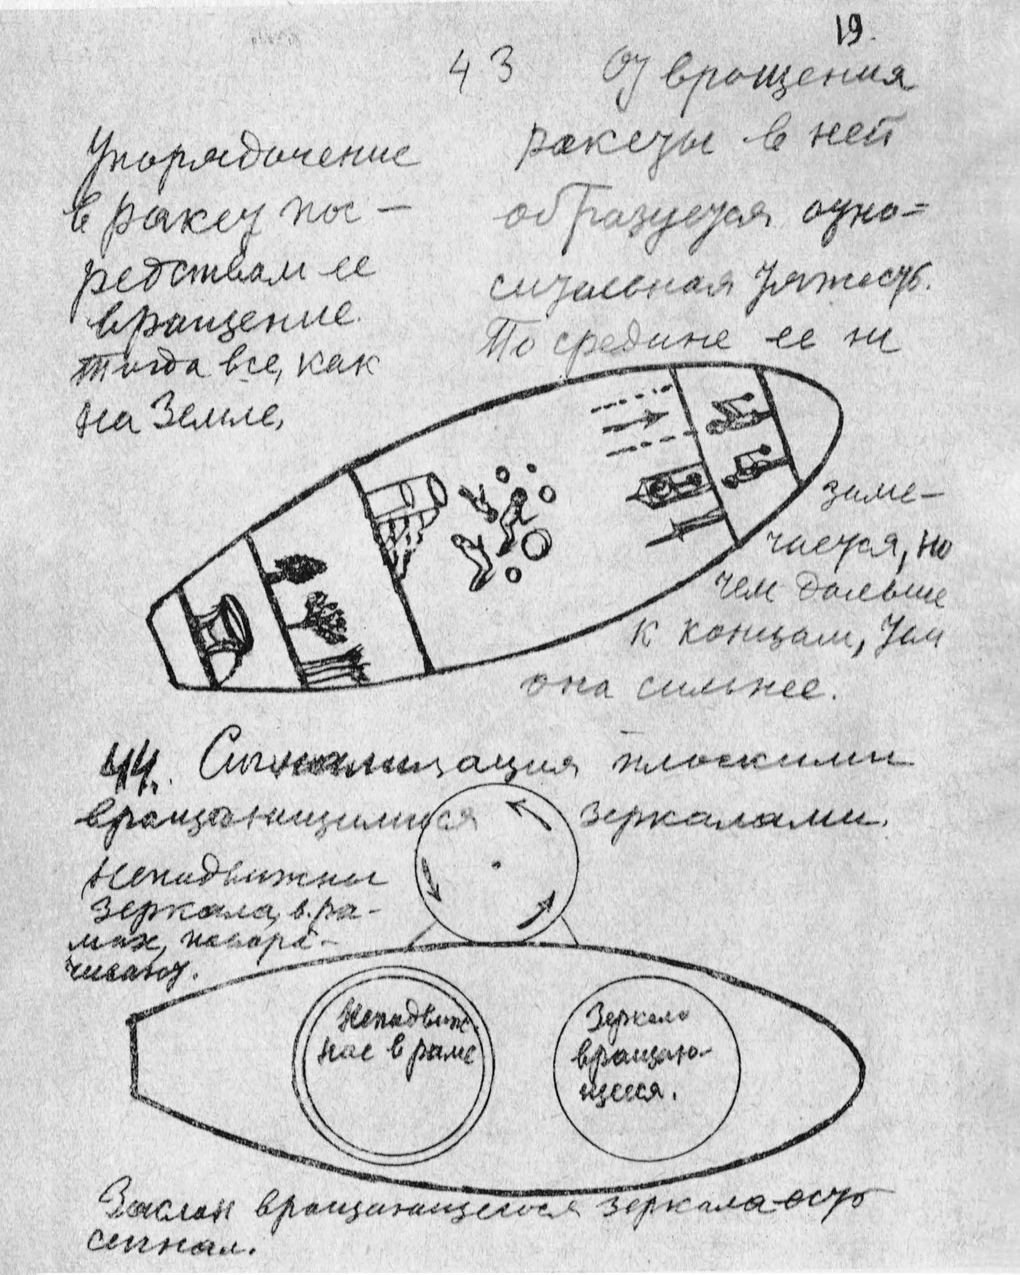 19.
43
Упорядочение
в ракету пос-
редством ее
вращение.
Тогда все, как
на Земле,
От вращения
ракеты в ней
образуется отно=
сительная тяжесть.
По средине ее не
заме-
чается, но
чем дальше
к концам, тем
она сильнее.
44. Сигнализация плоскими
вращающимися зеркалами.
Неподвижны
зеркала, в ра-
мах, повора-
чивают.
Неподвиж-
ное в раме
Зеркало
вращаю-
щееся.
Заслон вращающегося зеркала-есть
сигнал.